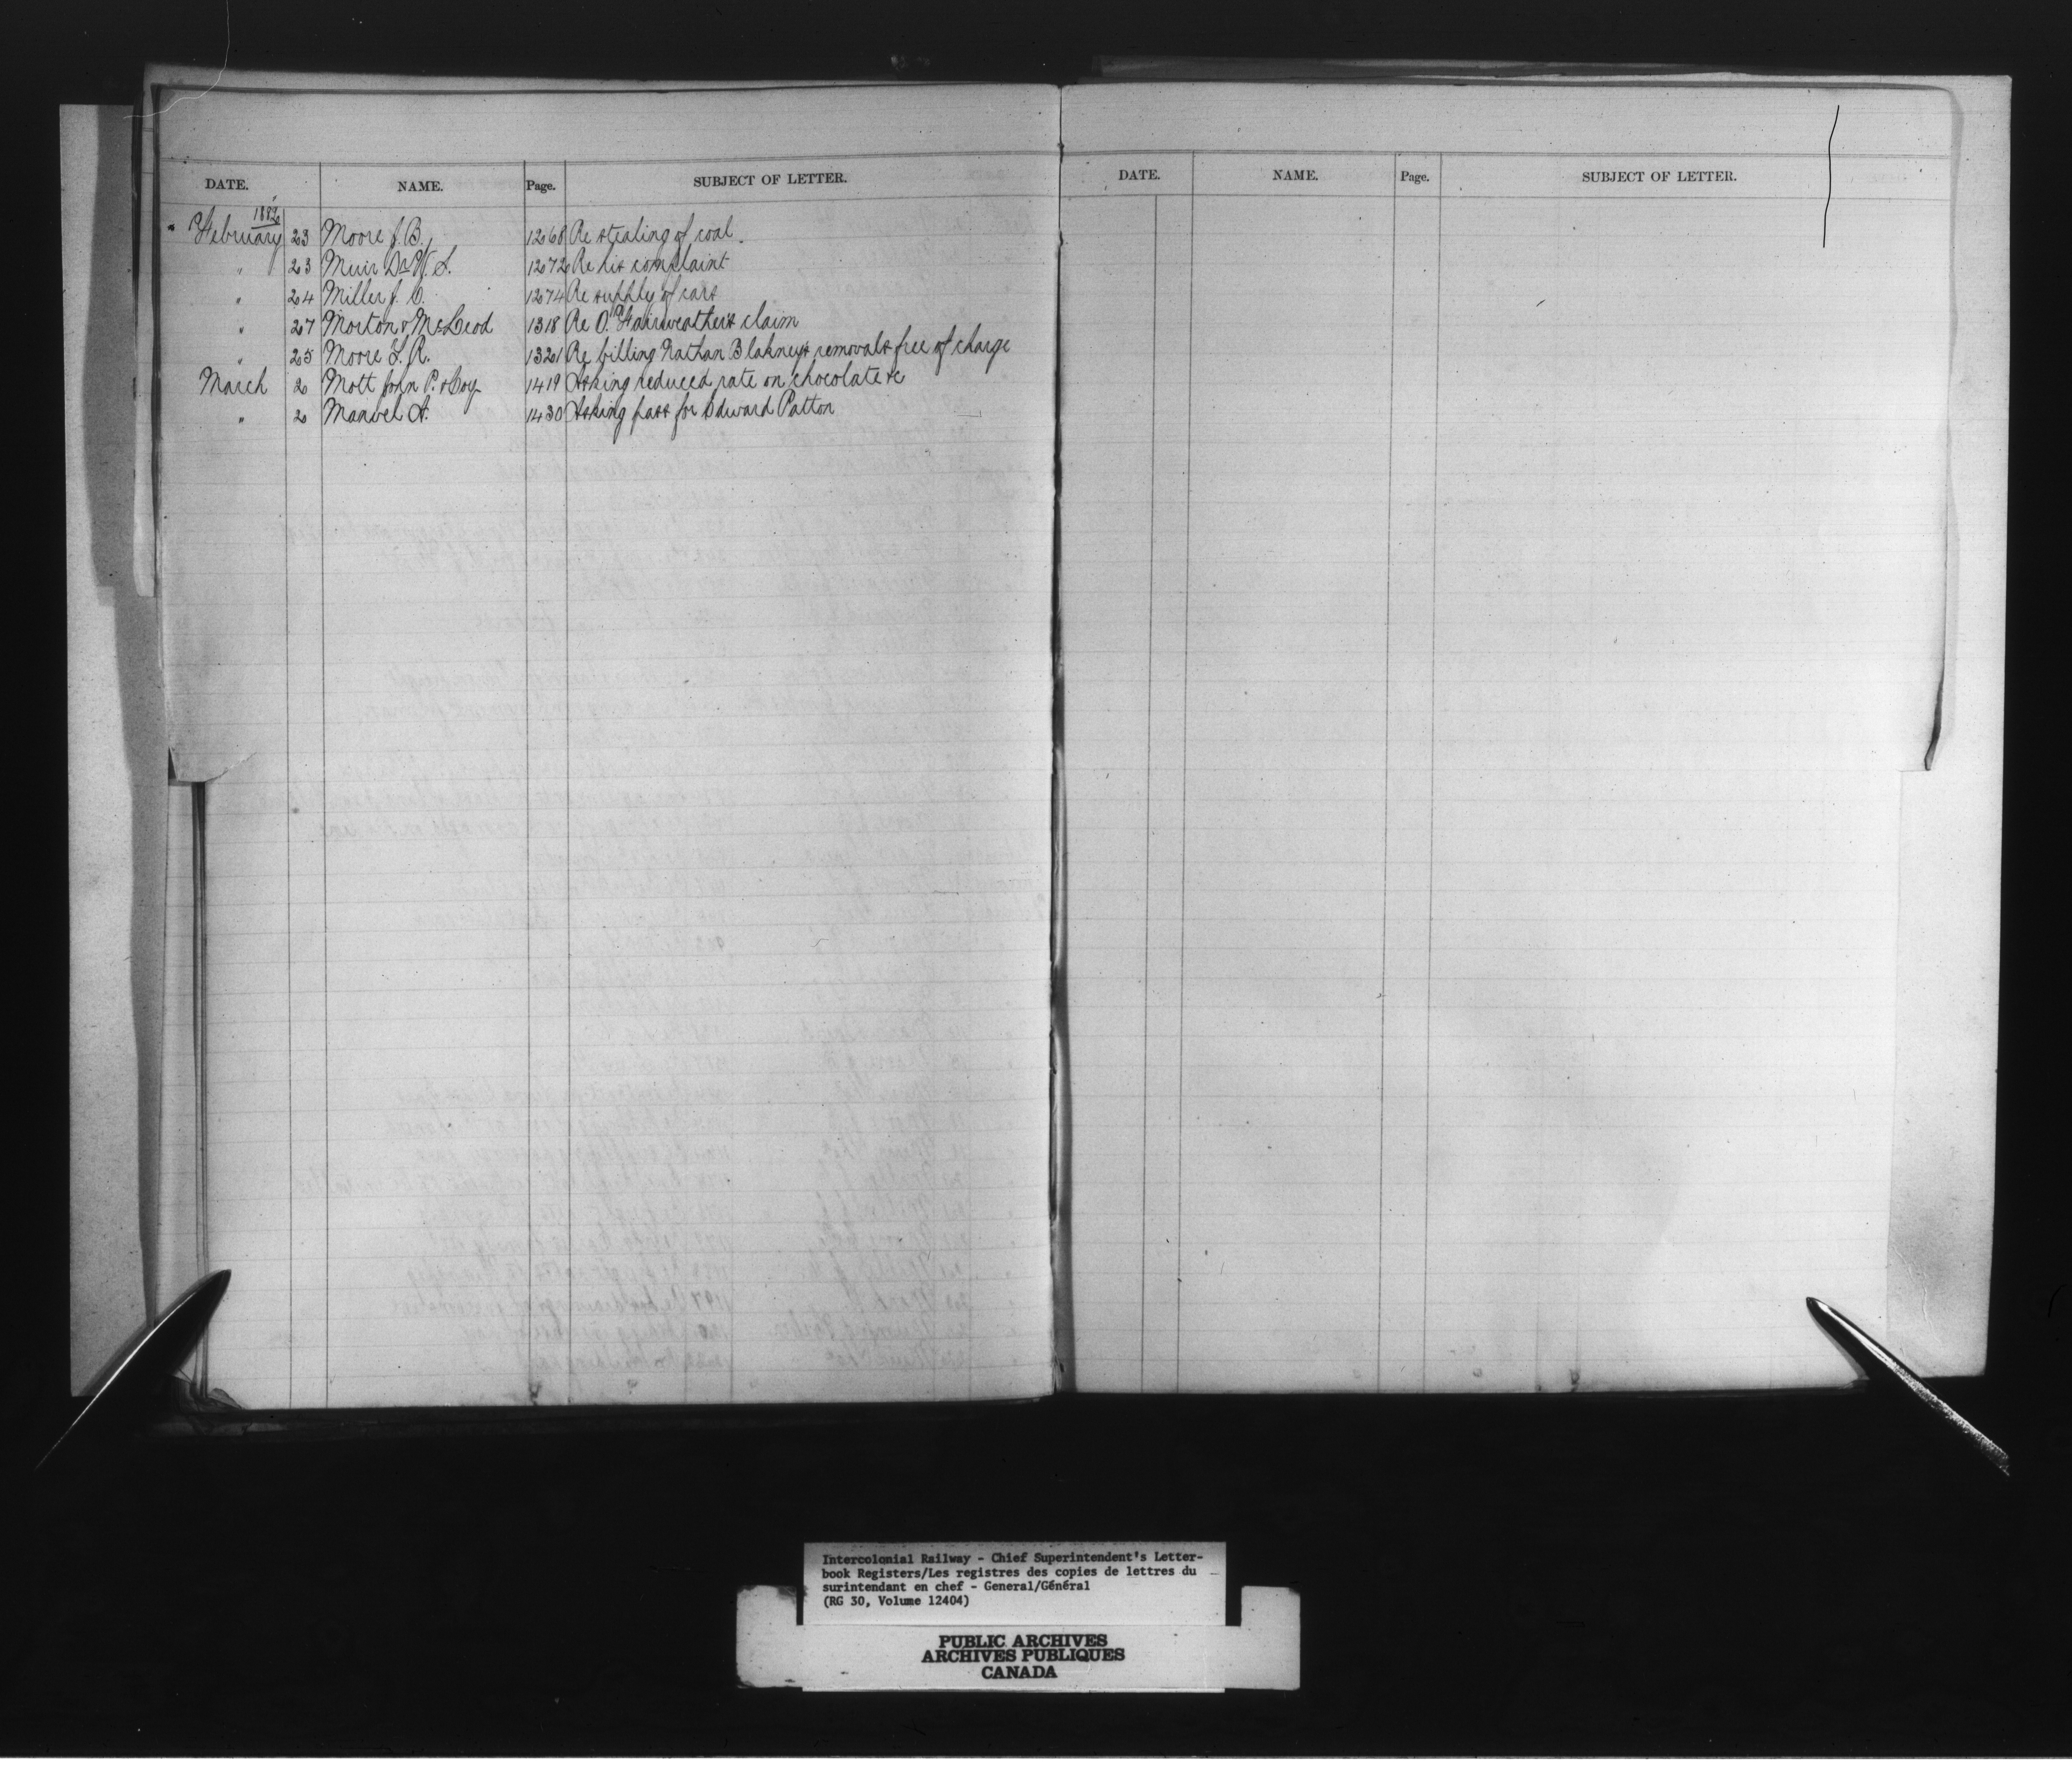 DATE. NAME. Page. SUBJECT OF LETTER.
1882
February 23 Moore J. B. 1268 Re stealing of coal.
" 23 Muir Dr W. S. 1272 Re his complaint
" 24 Miller J. O. 1274 Re supply of cars
" 27 Morton & McLeod 1318 Re O. Fairweather's claim
" 25 Moore L. R. 1321 Re billing Nathan Blakney's removals free of charge
March 2 Mott John P. & Coy 1419 Asking reduced rate on chocolate &c
" 2 Manvel A. 1430 Asking pass for Edward Patton
DATE. NAME. Page. SUBJECT OF LETTER.
Intercolonial Railway - Chief Superintendent's Letter-
book Registers/Les registres des copies de lettres du
surintendant en chef - General/Général
(RG 30, Volume 12404)
PUBLIC ARCHIVES
ARCHIVES PUBLIQUES
CANADA